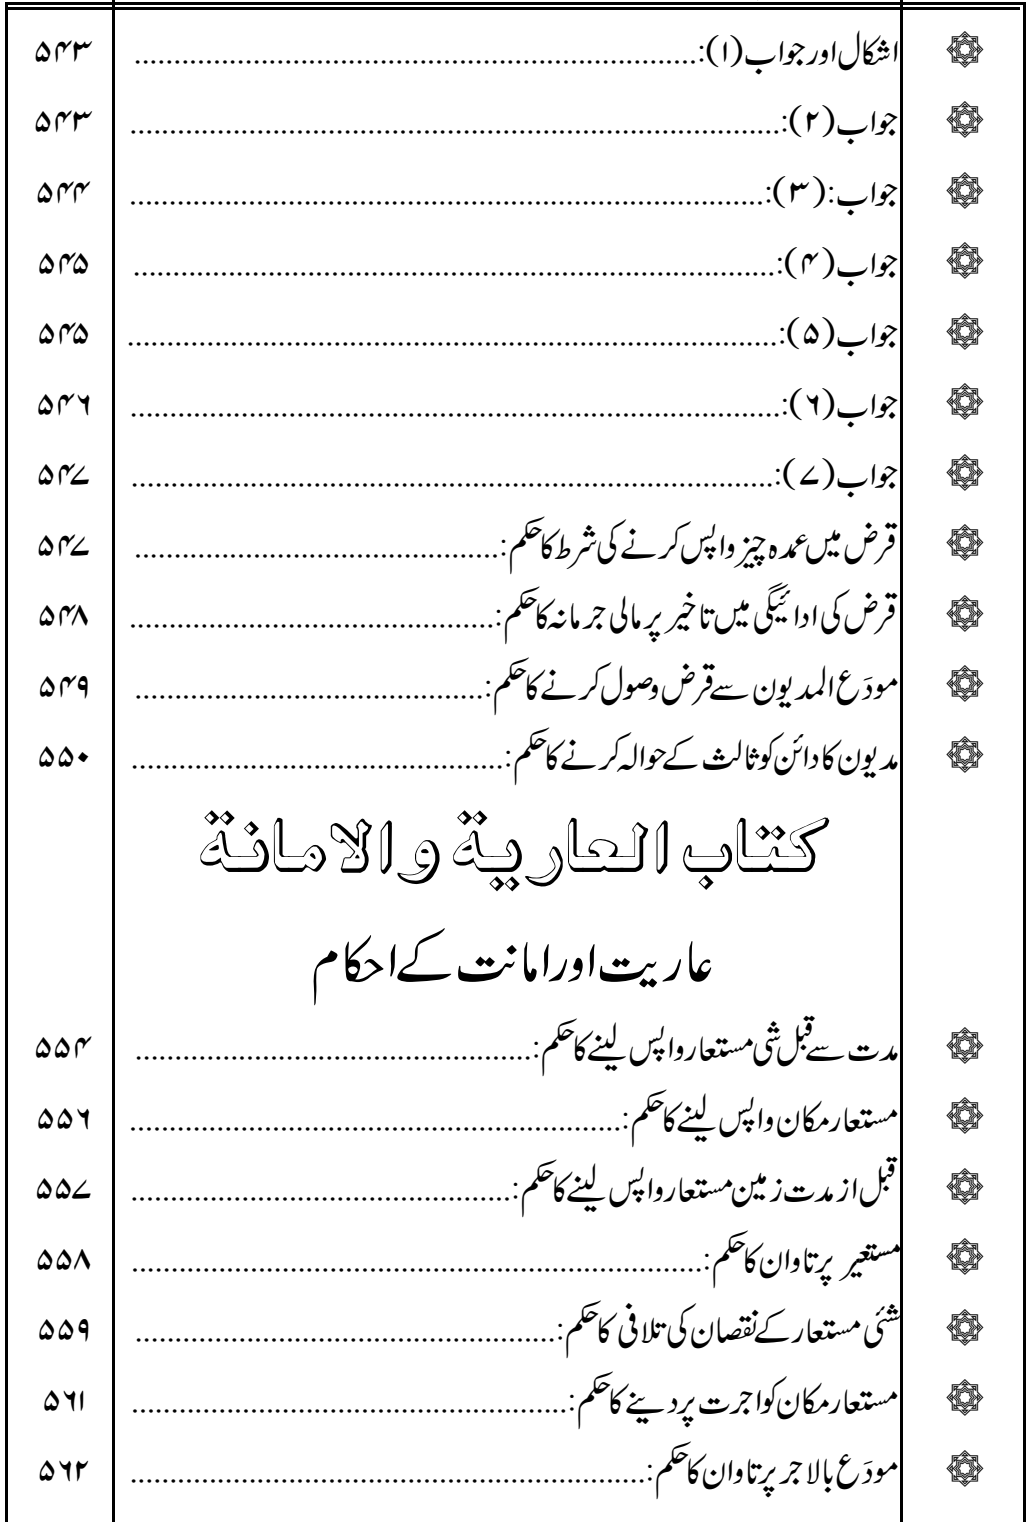 اشکال اور جواب (۱): ۵۴۳
جواب (۲): ۵۴۳
جواب: (۳): ۵۴۴
جواب (۴): ۵۴۵
جواب (۵): ۵۴۵
جواب (۶): ۵۴۶
جواب (۷): ۵۴۷
قرض میں عمدہ چیز واپس کرنے کی شرط کا حکم: ۵۴۷
قرض کی ادائیگی میں تاخیر پر مالی جرمانہ کا حکم: ۵۴۸
مودَع المدیون سے قرض وصول کرنے کا حکم: ۵۴۹
مدیون کا دائن کو ثالث کے حوالہ کرنے کا حکم: ۵۵۰
کتاب العاریة و الامانة
عاریت اور امانت کے احکام
مدت سے قبل شی مستعار واپس لینے کا حکم: ۵۵۴
مستعار مکان واپس لینے کا حکم: ۵۵۶
قبل از مدت زمین مستعار واپس لینے کا حکم: ۵۵۷
مستعیر پر تاوان کا حکم: ۵۵۸
شئی مستعار کے نقصان کی تلافی کا حکم: ۵۵۹
مستعار مکان کو اجرت پر دینے کا حکم: ۵۶۱
مودَع بالاجر پر تاوان کا حکم: ۵۶۲